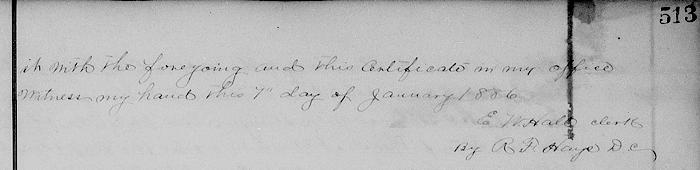 513
it with the foregoing and this Certificate in my office
Witness my hand this 7" day of January 1886
E W Hall clerk
By R F Hays D C